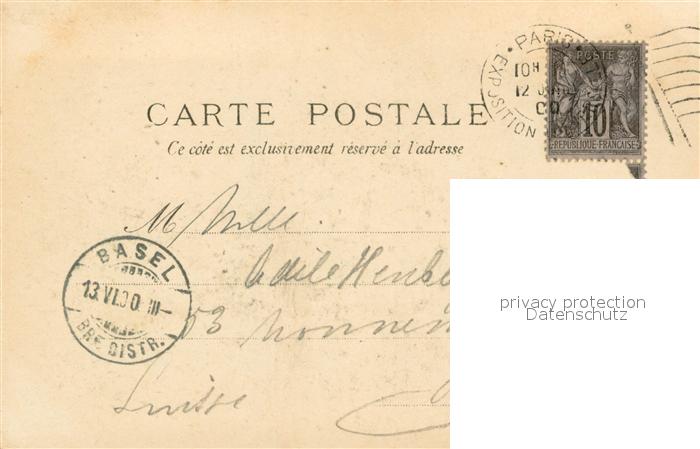 PARIS EXPOSITION
10H
12
00
POSTE
10
REPUBLIQUE FRANÇAISE
CARTE POSTALE
Ce côté est exclusivement réservé à l'adresse
BASEL
13.VI.00. III
BRF. DISTR.
53
Suisse
privacy protection
Datenschutz